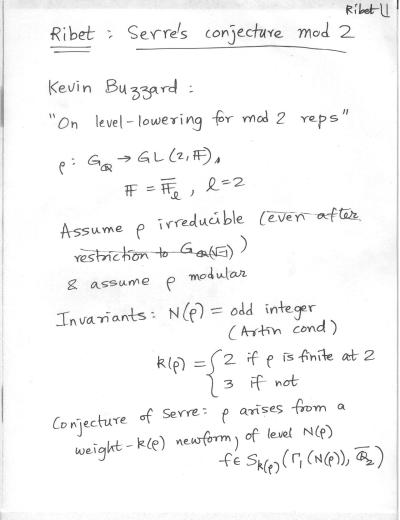 Ribet LL
Ribet : Serre's conjecture mod 2
Kevin Buzzard :
"On level-lowering for mod 2 reps"
ρ: G_ℚ → GL(2, 𝔽),
𝔽 = 𝔽̄_ℓ, ℓ=2
Assume ρ irreducible (even after
restriction to G_ℚ(√-1))
& assume ρ modular
Invariants: N(ρ) = odd integer
(Artin cond)
k(ρ) = { 2 if ρ is finite at 2
3 if not
Conjecture of Serre: ρ arises from a
weight-k(ρ) newform, of level N(ρ)
f ∈ S_k(ρ)(Γ₁(N(ρ)), ℚ̄₂)